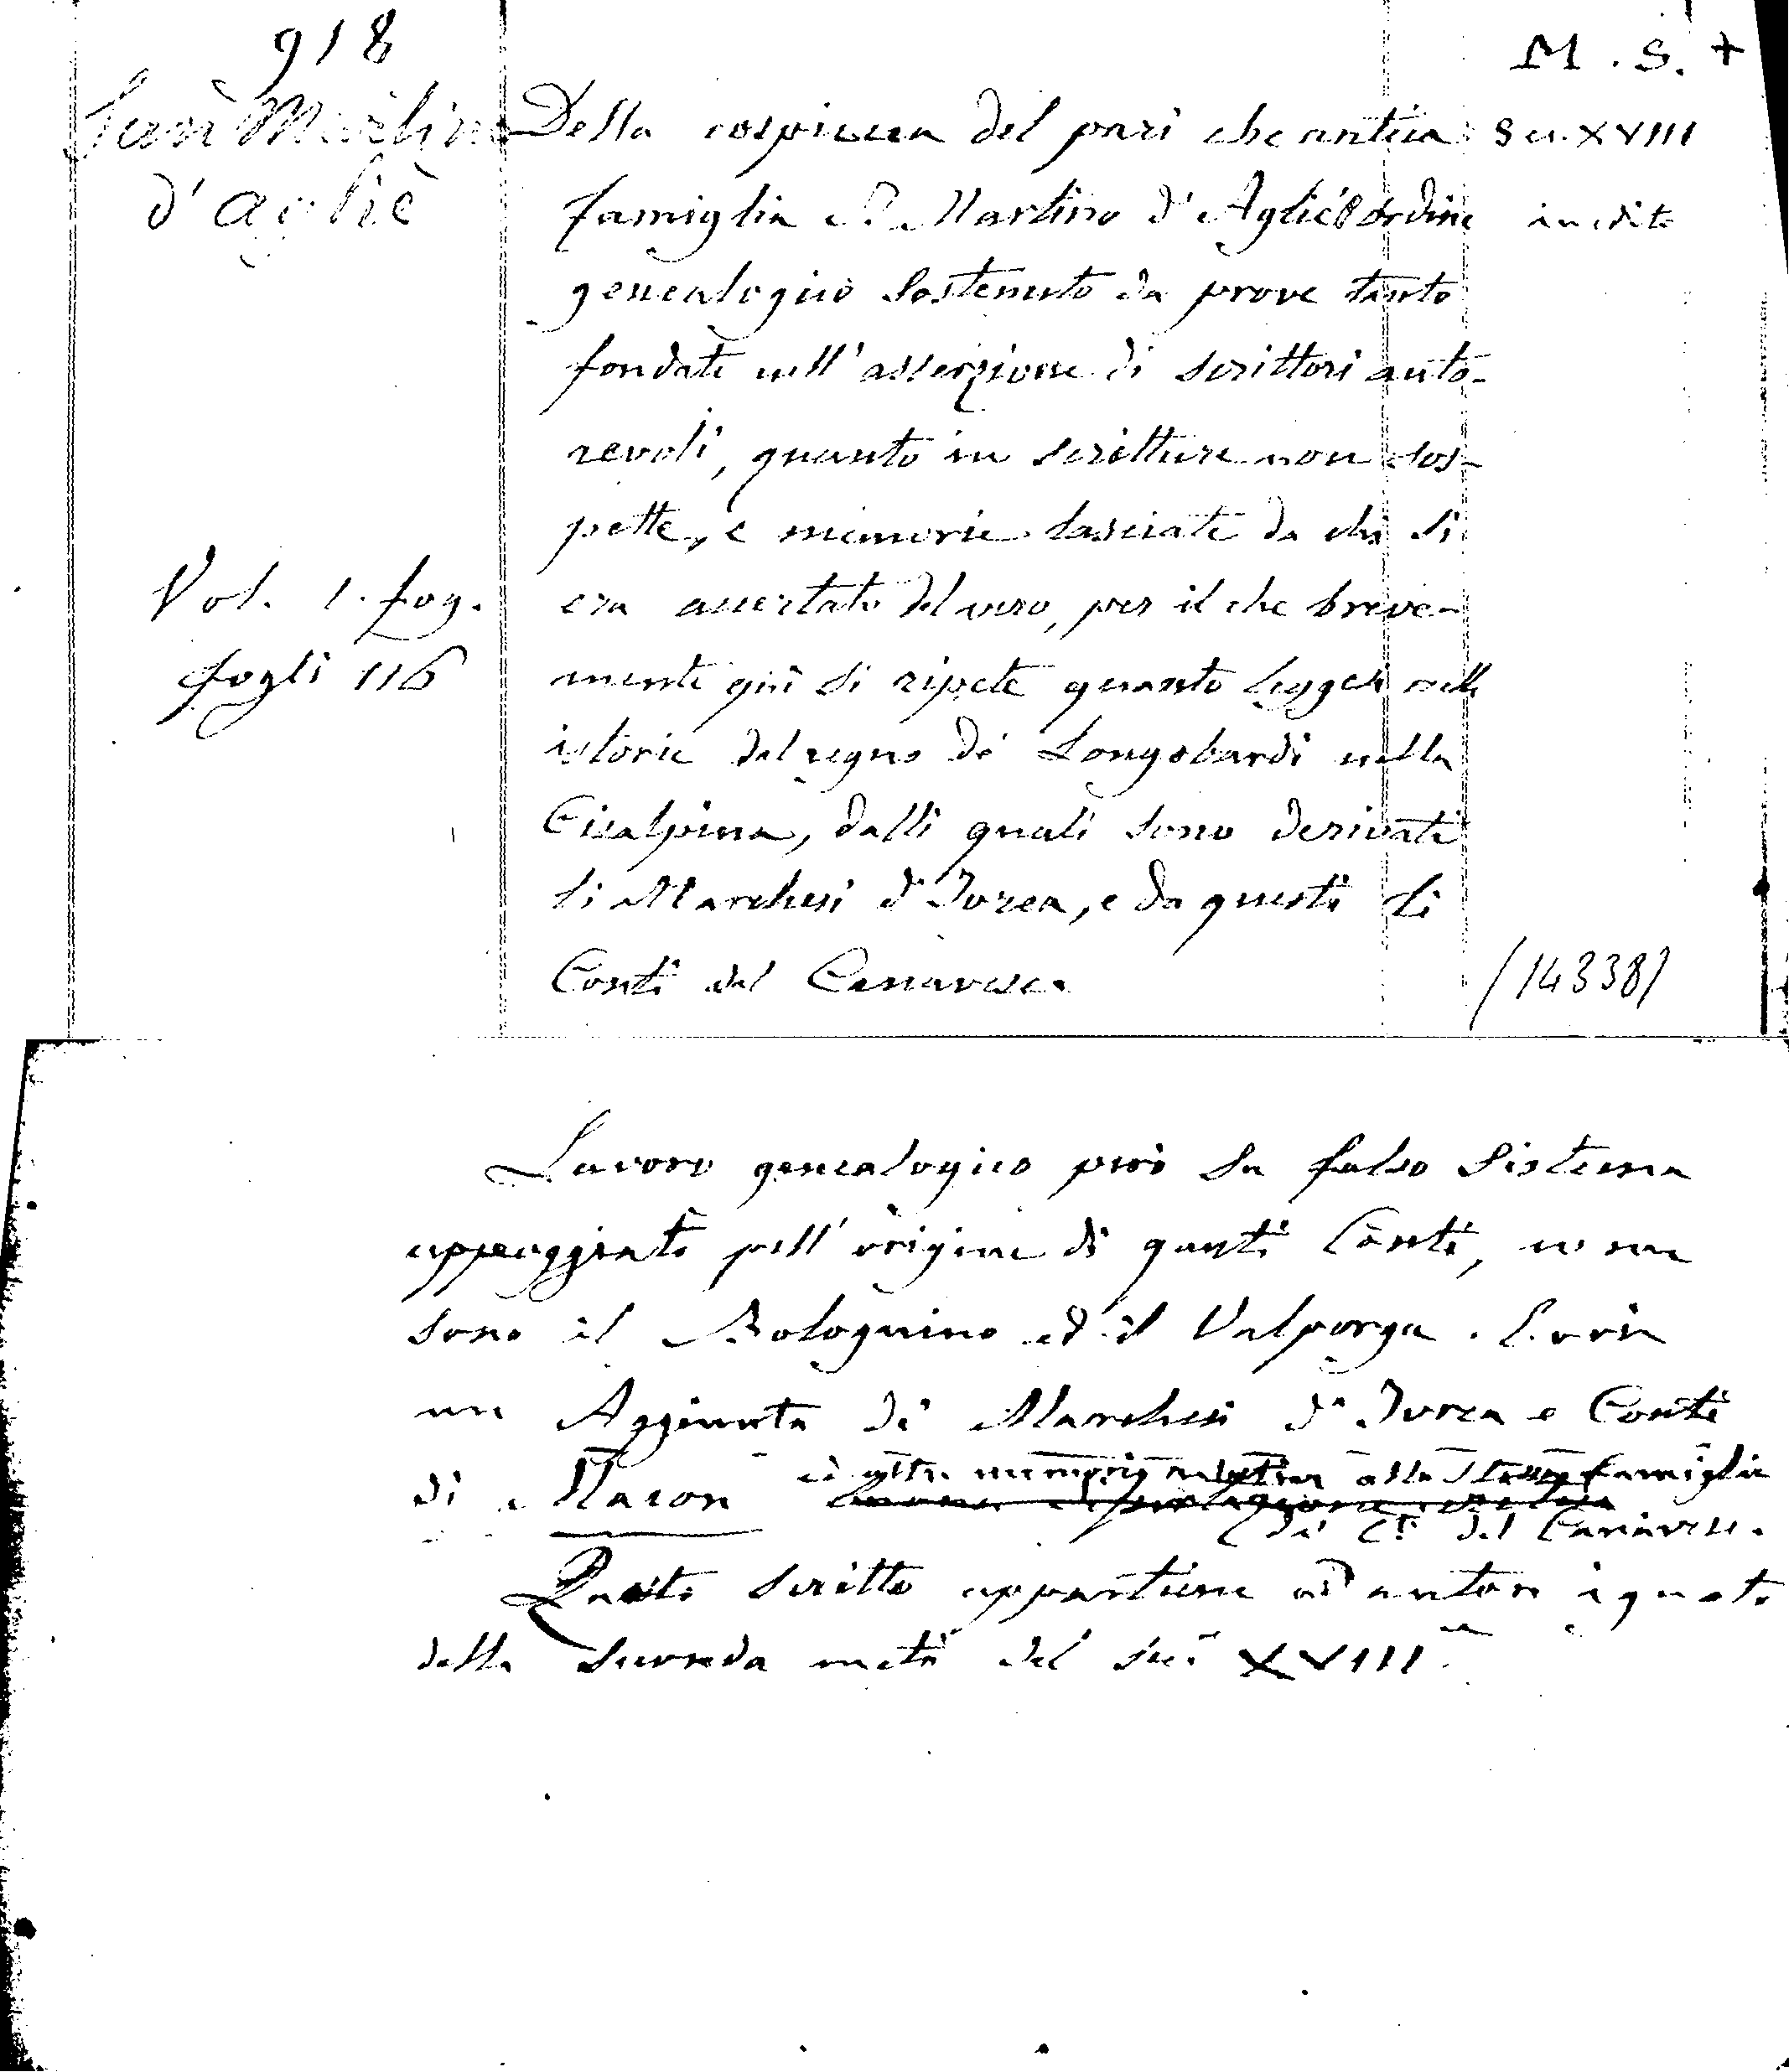 918
M. S. +
San Martino
d'Agliè
Della cospicua del pari che antica
Sec. XVIII
famiglia S. Martino d'Agliè Ordine
inedito
genealogico sostenuto da prove tanto
fondate nell'asserzione di scrittori auto-
revoli, quanto in scritture non sos-
pette, e memorie lasciate da chi si
Vol. 1. fog.
era accertato del vero, per il che breve-
fogli 116
mente quì si ripete quanto leggesi nelle
istorie del regno de' Longobardi nella
Cisalpina, dalli quali sono derivati
li Marchesi d'Ivrea, e da questi li
Conti del Canavese.
(14338)
Lavoro genealogico però su falso sistema
appoggiato sull'origine di questi Conti, come
sono il Bolognino ed il Valperga. Evvi
un Aggiunta di Marchesi d'Ivrea e Conti
ed altre memorie relative alla stessa famiglia
di Macon
de' Cti del Canavese.
Questo scritto appartiene ad autore ignoto
della seconda metà del sec. XVIII.